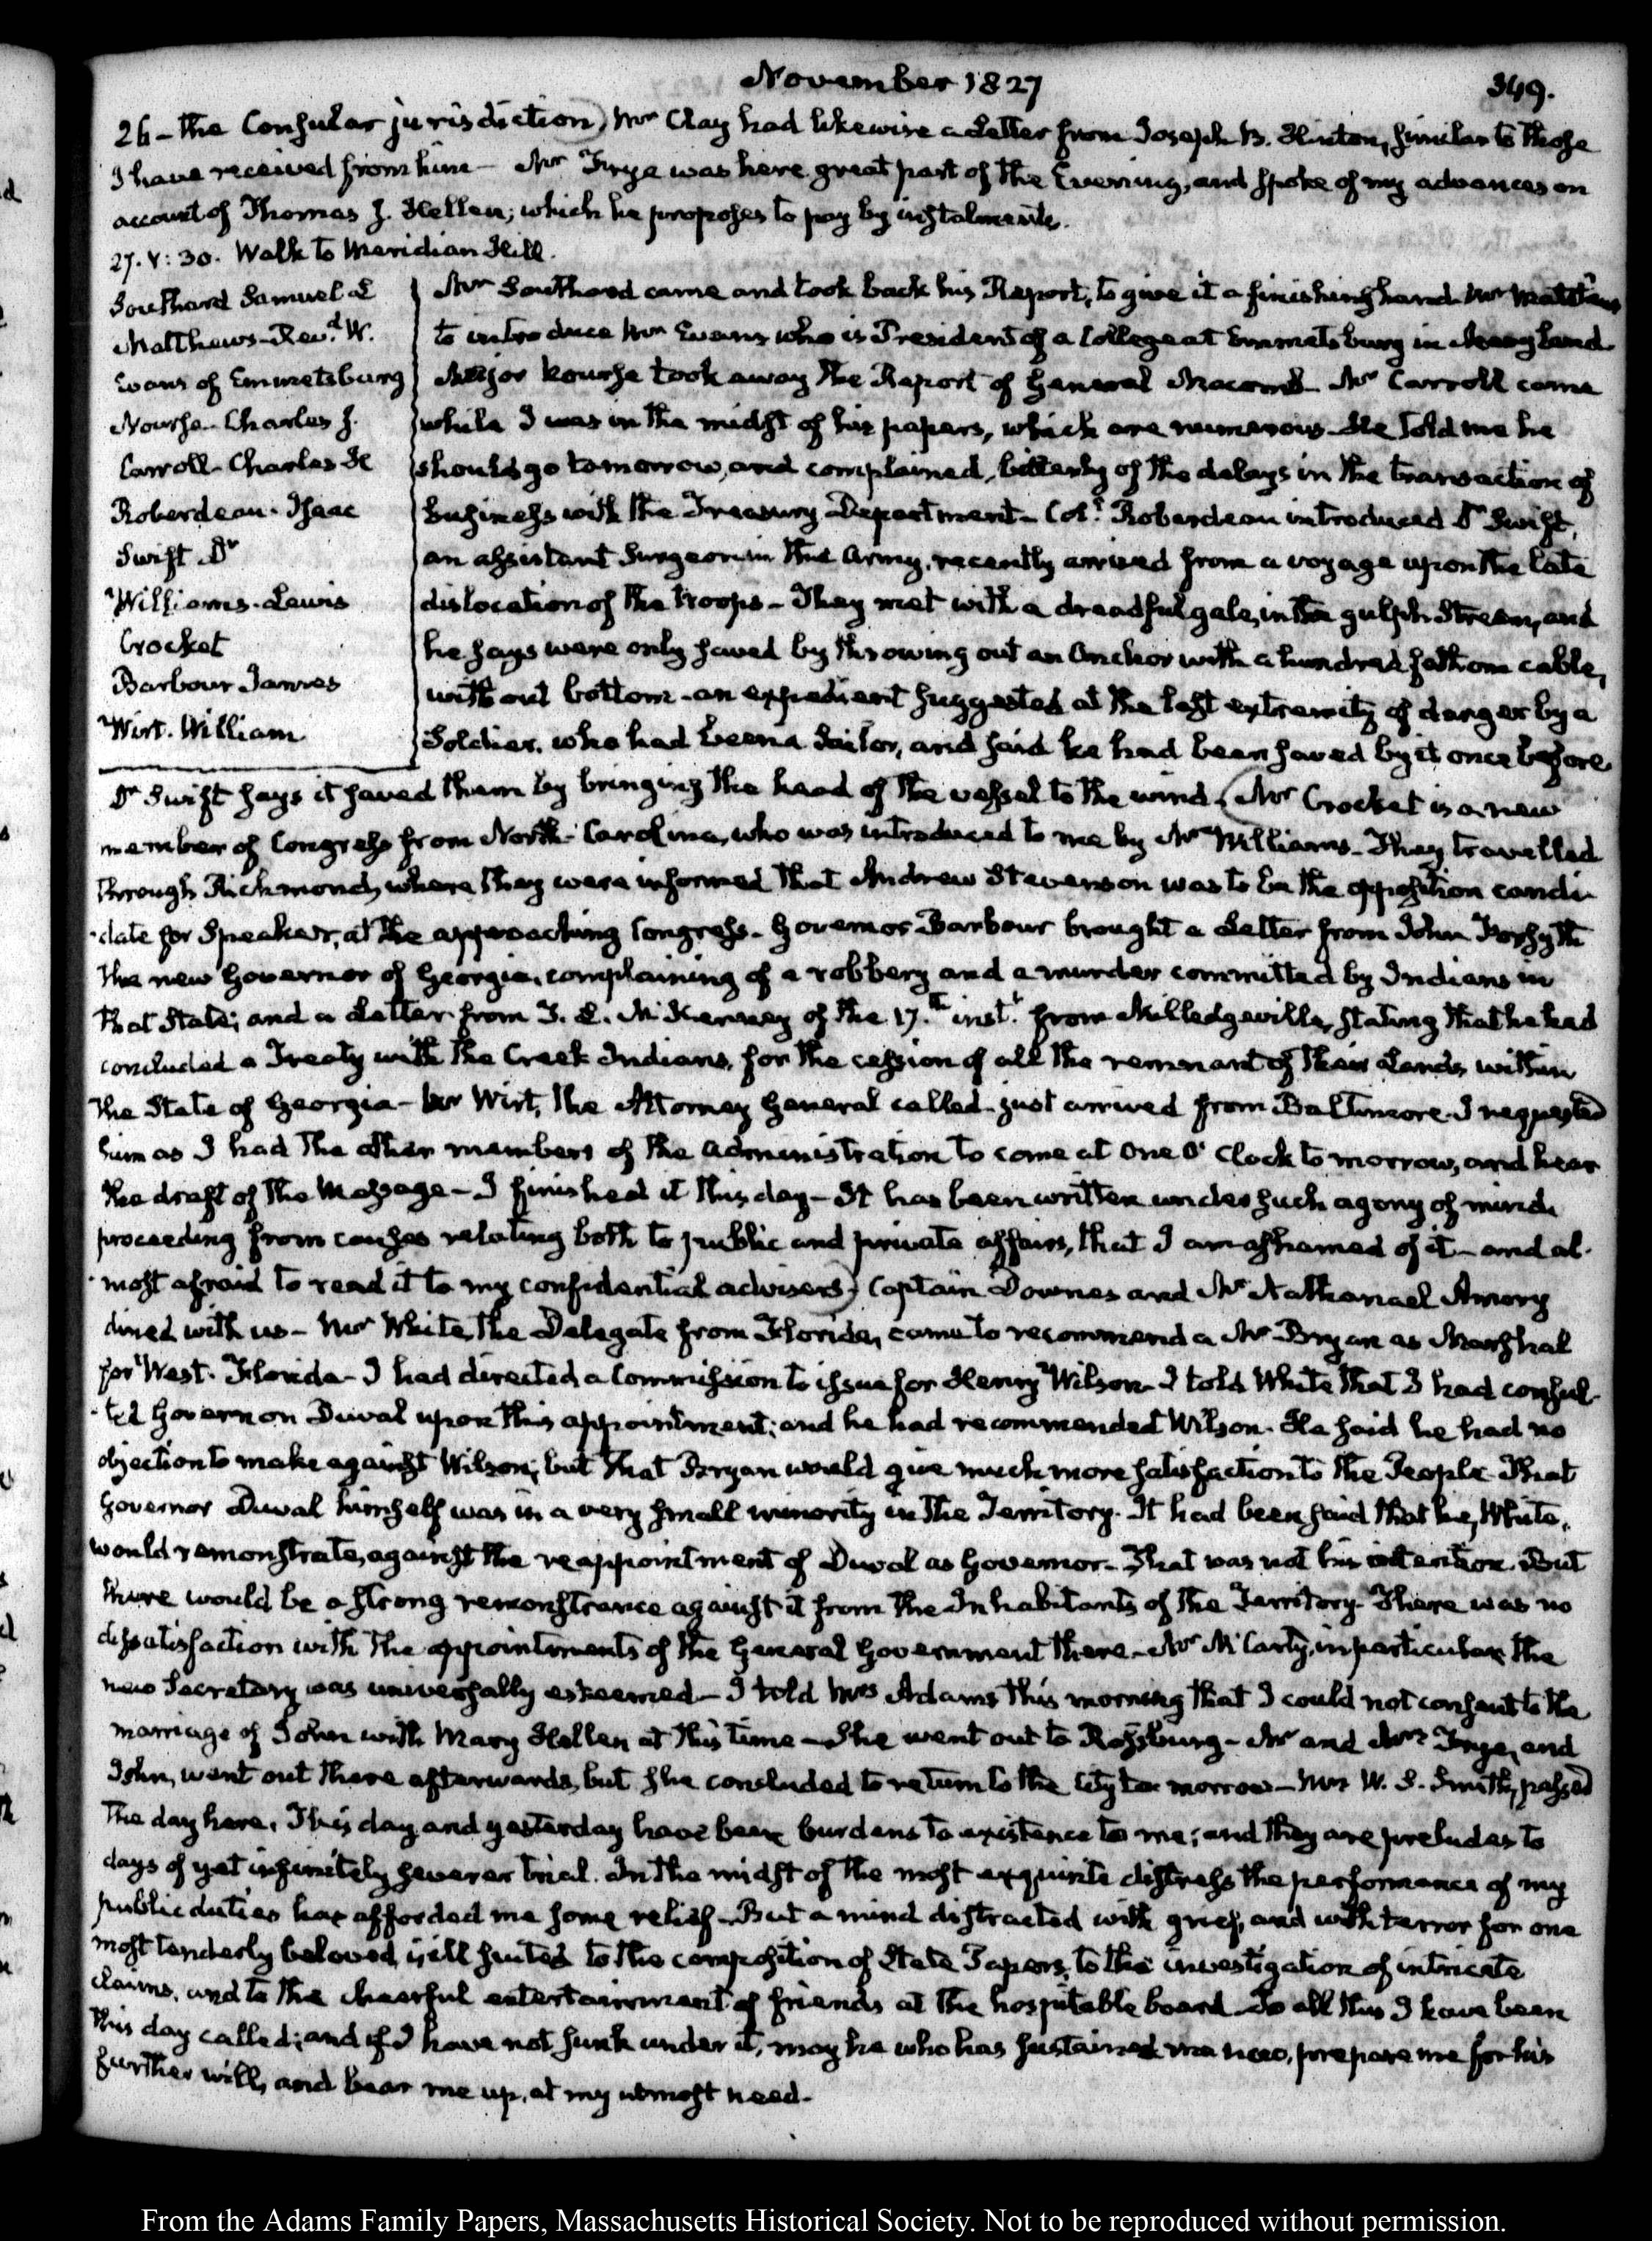 November 1827
349.
26 - the Consular jurisdiction) Mr Clay had likewise a Letter from Joseph B. Hinton, similar to those
I have received from him - Mr Frye was here great part of the Evening, and spoke of my advances on
account of Thomas J. Hellen; which he proposes to pay by instalments.
27. V: 30. Walk to Meridian Hill.
Southard Samuel L
Matthews - Revd. W.
Evans of Emmetsburg
Nourse - Charles J.
Carroll - Charles H
Roberdeau - Isaac
Swift Dr
Williams - Lewis
Crocket
Barbour James
Wirt. William
Mr Southard came and took back his Report, to give it a finishing hand - Mr Matthews
to introduce Mr Evans who is President of a College at Emmetsburg in Maryland.
Major Nourse took away the Report of General Macomb - Mr Carroll came
while I was in the midst of his papers, which are numerous - He told me he
should go tomorrow, and complained, bitterly of the delays in the transaction of
business with the Treasury Department - Col.l Roberdeau introduced Dr Swift,
an assistant Surgeon in the Army, recently arrived from a voyage upon the late
dislocation of the troops - They met with a dreadful gale, in the gulph Stream, and
he says were only saved by throwing out an Anchor with a hundred fathom cable,
without bottom - an expedient suggested at the last extremity of danger by a
Soldier, who had been a Sailor, and said he had been saved by it once before.
Dr Swift says it saved them by bringing the head of the vessel to the wind. (Mr Crocket is a new
member of Congress from North-Carolina, who was introduced to me by Mr Williams - They travelled
through Richmond, where they were informed that Andrew Stevenson was to be the opposition candi-
-date for Speaker, at the approaching Congress - Governor Barbour brought a Letter from John Forsyth
the new Governor of Georgia, complaining of a robbery and a murder committed by Indians in
that State; and a Letter from T. L. McKenney of the 17.th inst.t from Milledgeville, stating that he had
concluded a Treaty with the Creek Indians, for the cession of all the remnant of their Lands, within
the State of Georgia - Mr Wirt, the Attorney General called - just arrived from Baltimore. I requested
him as I had the other members of the Administration to come at One O'Clock to morrow, and hear
the draft of the Message - I finished it this day - It has been written under such agony of mind,
proceeding from causes relating both to public and private affairs, that I am ashamed of it - and al-
-most afraid to read it to my confidential advisers) Captain Downes and Mr Nathanael Amory
dined with us - Mr White, the Delegate from Florida, came to recommend a Mr Bryan as Marshal
for West-Florida - I had directed a Commission to issue for Henry Wilson - I told White that I had consul-
-ted Governor Duval upon this appointment; and he had recommended Wilson - He said he had no
objection to make against Wilson; but that Bryan would give much more satisfaction to the People - That
Governor Duval himself was in a very small minority in the Territory. It had been said that he, White,
would remonstrate, against the reappointment of Duval as Governor - That was not his intention. But
there would be a strong remonstrance against it from the Inhabitants of the Territory - There was no
dissatisfaction with the appointments of the General Government there - Mr McCarty, in particular, the
new Secretary was universally esteemed - I told Mrs Adams this morning that I could not consent to the
marriage of John with Mary Hellen at this time - She went out to Rossburg - Mr and Mrs Frye, and
John, went out there afterwards, but she concluded to return to the City to morrow - Mrs W. S. Smith, passed
the day here. This day and yesterday have been burdens to existence to me; and they are preludes to
days of yet infinitely severer trial. In the midst of the most exquisite distress the performance of my
public duties has afforded me some relief - But a mind distracted with grief, and with terror for one
most tenderly beloved, is ill suited to the composition of State Papers, to the investigation of intricate
claims, and to the chearful entertainment of friends at the hospitable board - To all this I have been
this day called; and if I have not sunk under it, may he who has sustained me now, prepare me for his
further will, and bear me up, at my utmost need.
From the Adams Family Papers, Massachusetts Historical Society. Not to be reproduced without permission.